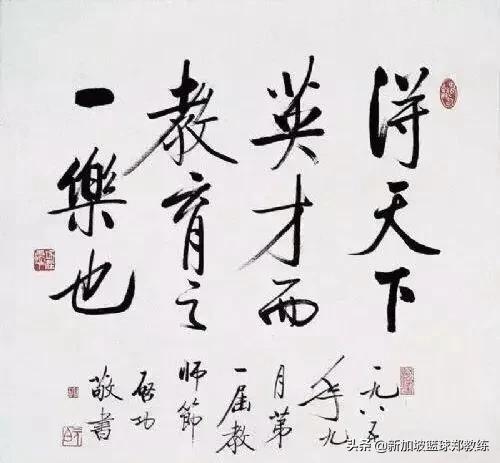 得天下
英才而
教育之
一樂也
一九八五
年九
月第
一届教
師節
啟功
敬書
头条 @新加坡篮球郑教练